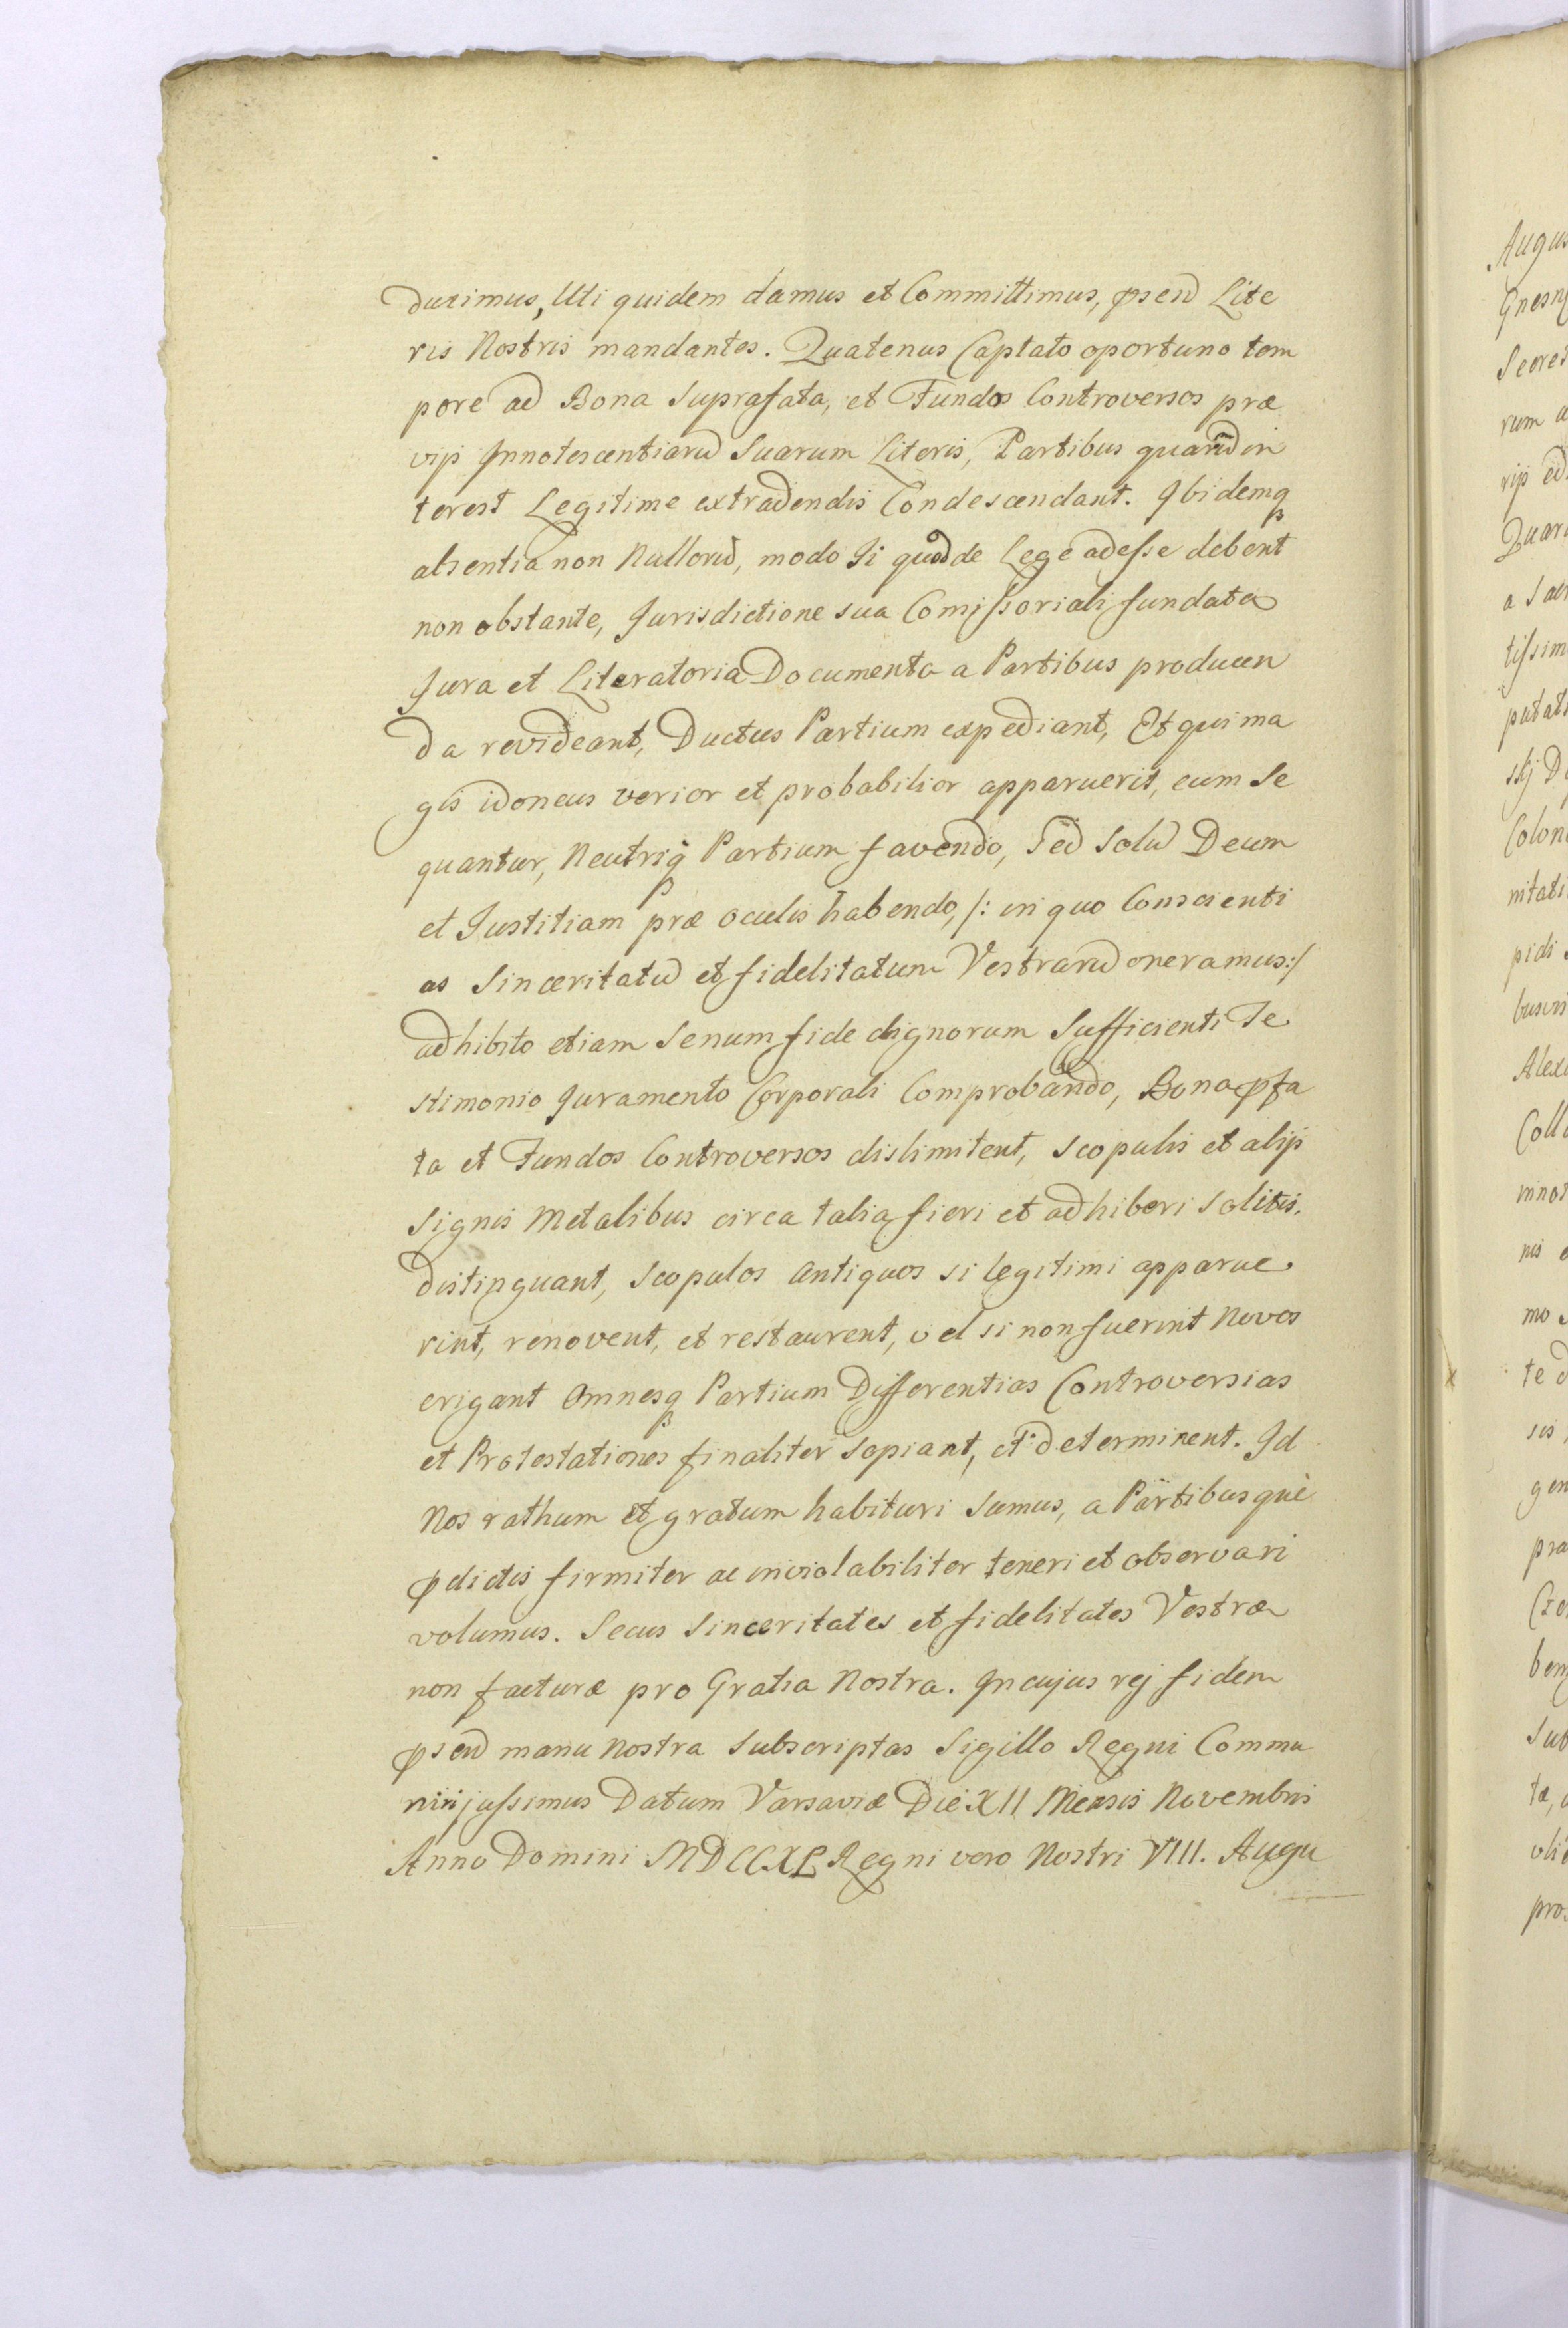 durimus, Uti quidem damus et Committimus, psend Lite
ris Nostris mandantes. Quatenus Captato oportuno tem
pore ad Bona Suprafata, et Fundos Controversos præ
vijs Innotescentiarū Suarum Literis, Partibus quarū in
terest Legitime extradendis Condescendant. Ibidemq
absentia non Nullorū, modo Ji quod de Lege adesse debent
non obstante, Jurisdictione sua Comissoriali fundata
Jura et Literatoria Documenta a Partibus producen
da revideant, Ductus Partium expediant, Et qui ma
gis idoneus verior et probabilior apparuerit, eum Se
quantur, Neutriq Partium favendo, Sed Solū Deum
et Justitiam præ oculis habendo, /: in quo Conscienti
as Sinceritatū et fidelitatum Vestrarū oneramus:/
adhibito etiam Senum fide dignorum Sufficienti Te
stimonio Juramento Corporali Comprobando, Bona pfa
ta et Fundos Controversos dislimitent, Scopulis et alijs
Signis Metalibus circa talia fieri et adhiberi Solitis.
distinguant, Scopulos Antiquos si legitimi apparue
rint, renovent, et restaurent, vel si non fuerint Novos
erigant Omnesq Partium Differentias Controversias
et Protestationes finaliter Sopiant, et determinent. Id
Nos rathum et gratum habituri Sumus, a Partibusquè
pdictis firmiter ac inviolabiliter teneri et observari
volumus. Secus Sinceritates et fidelitates Vestræ
non facturæ pro Gratia Nostra. In cujus rej fidem
psend manu Nostra Subscriptas Sigillo Regni Commu
niri jussimus Datum Varsaviæ Die XII Mensis Novembris
Anno Domini MDCCXL Regni vero Nostri VIII. Augu